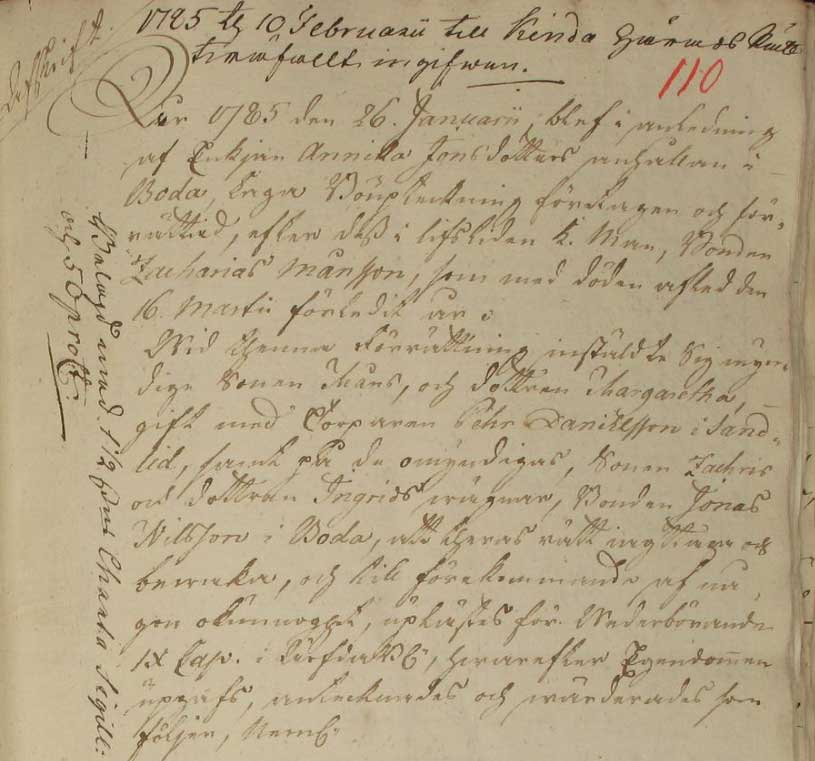 Afskrift.
1785 den 10 Februarii till Kinda Härads Rätt
terminaliter ingifwen.
110
Åhr 1785 den 26. Januarii, blef i anledning
af Enkjan Annika Jonsdotters anhållan i
Boda, laga Bouptekning företagen och för-
rättad, efter deß i lifstiden k. Man, Bonden
Zacharias Månsson, som med döden afled den
16. Martii förledit år:
Wid thenna Förrättning instäldte Sig myn-
dige Sonen Måns, och dottren Margaretha,
gift med Torparen Pehr Danielsson i Sand-
lid, samt på de omyndigas, Sonen Zachris
och dottran Ingrids wägnar, Bonden Jonas
Nilsson i Boda, att theras rätt iagttaga och
bewaka, och till förekommande af nå-
gon okunnoghet, uplästes för Wederbörande
IX Cap. i Ärfda B:, hwarefter Egendomen
upgafs, antecknades och wärderades som
följer, Neml:
Belagd med 1 1/2 Charta Sigill:
och 50 proct: